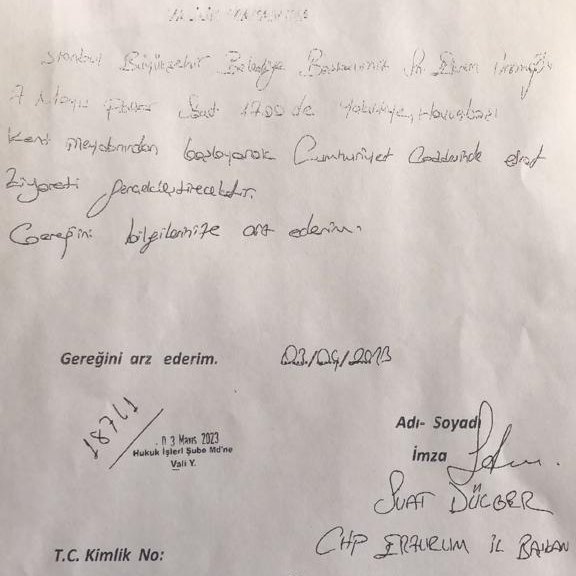 İstanbul Büyükşehir Belediye Başkanımız Sn Ekrem İmamoğlu
7 Mayıs Pazar Saat 17.00 de Yakutiye, Havuzbaşı
Kent meydanından başlayarak Cumhuriyet Caddesinde esnaf
Ziyareti gerçekleştirecektir.
Gereğini bilgilerinize arz ederim.
Gereğini arz ederim. 03/05/2023
18741
03 Mayıs 2023
Hukuk İşleri Şube Md'ne
Vali Y.
Adı- Soyadı
İmza
SUAT DÜLGER
CHP ERZURUM İL BAŞKANI
T.C. Kimlik No: